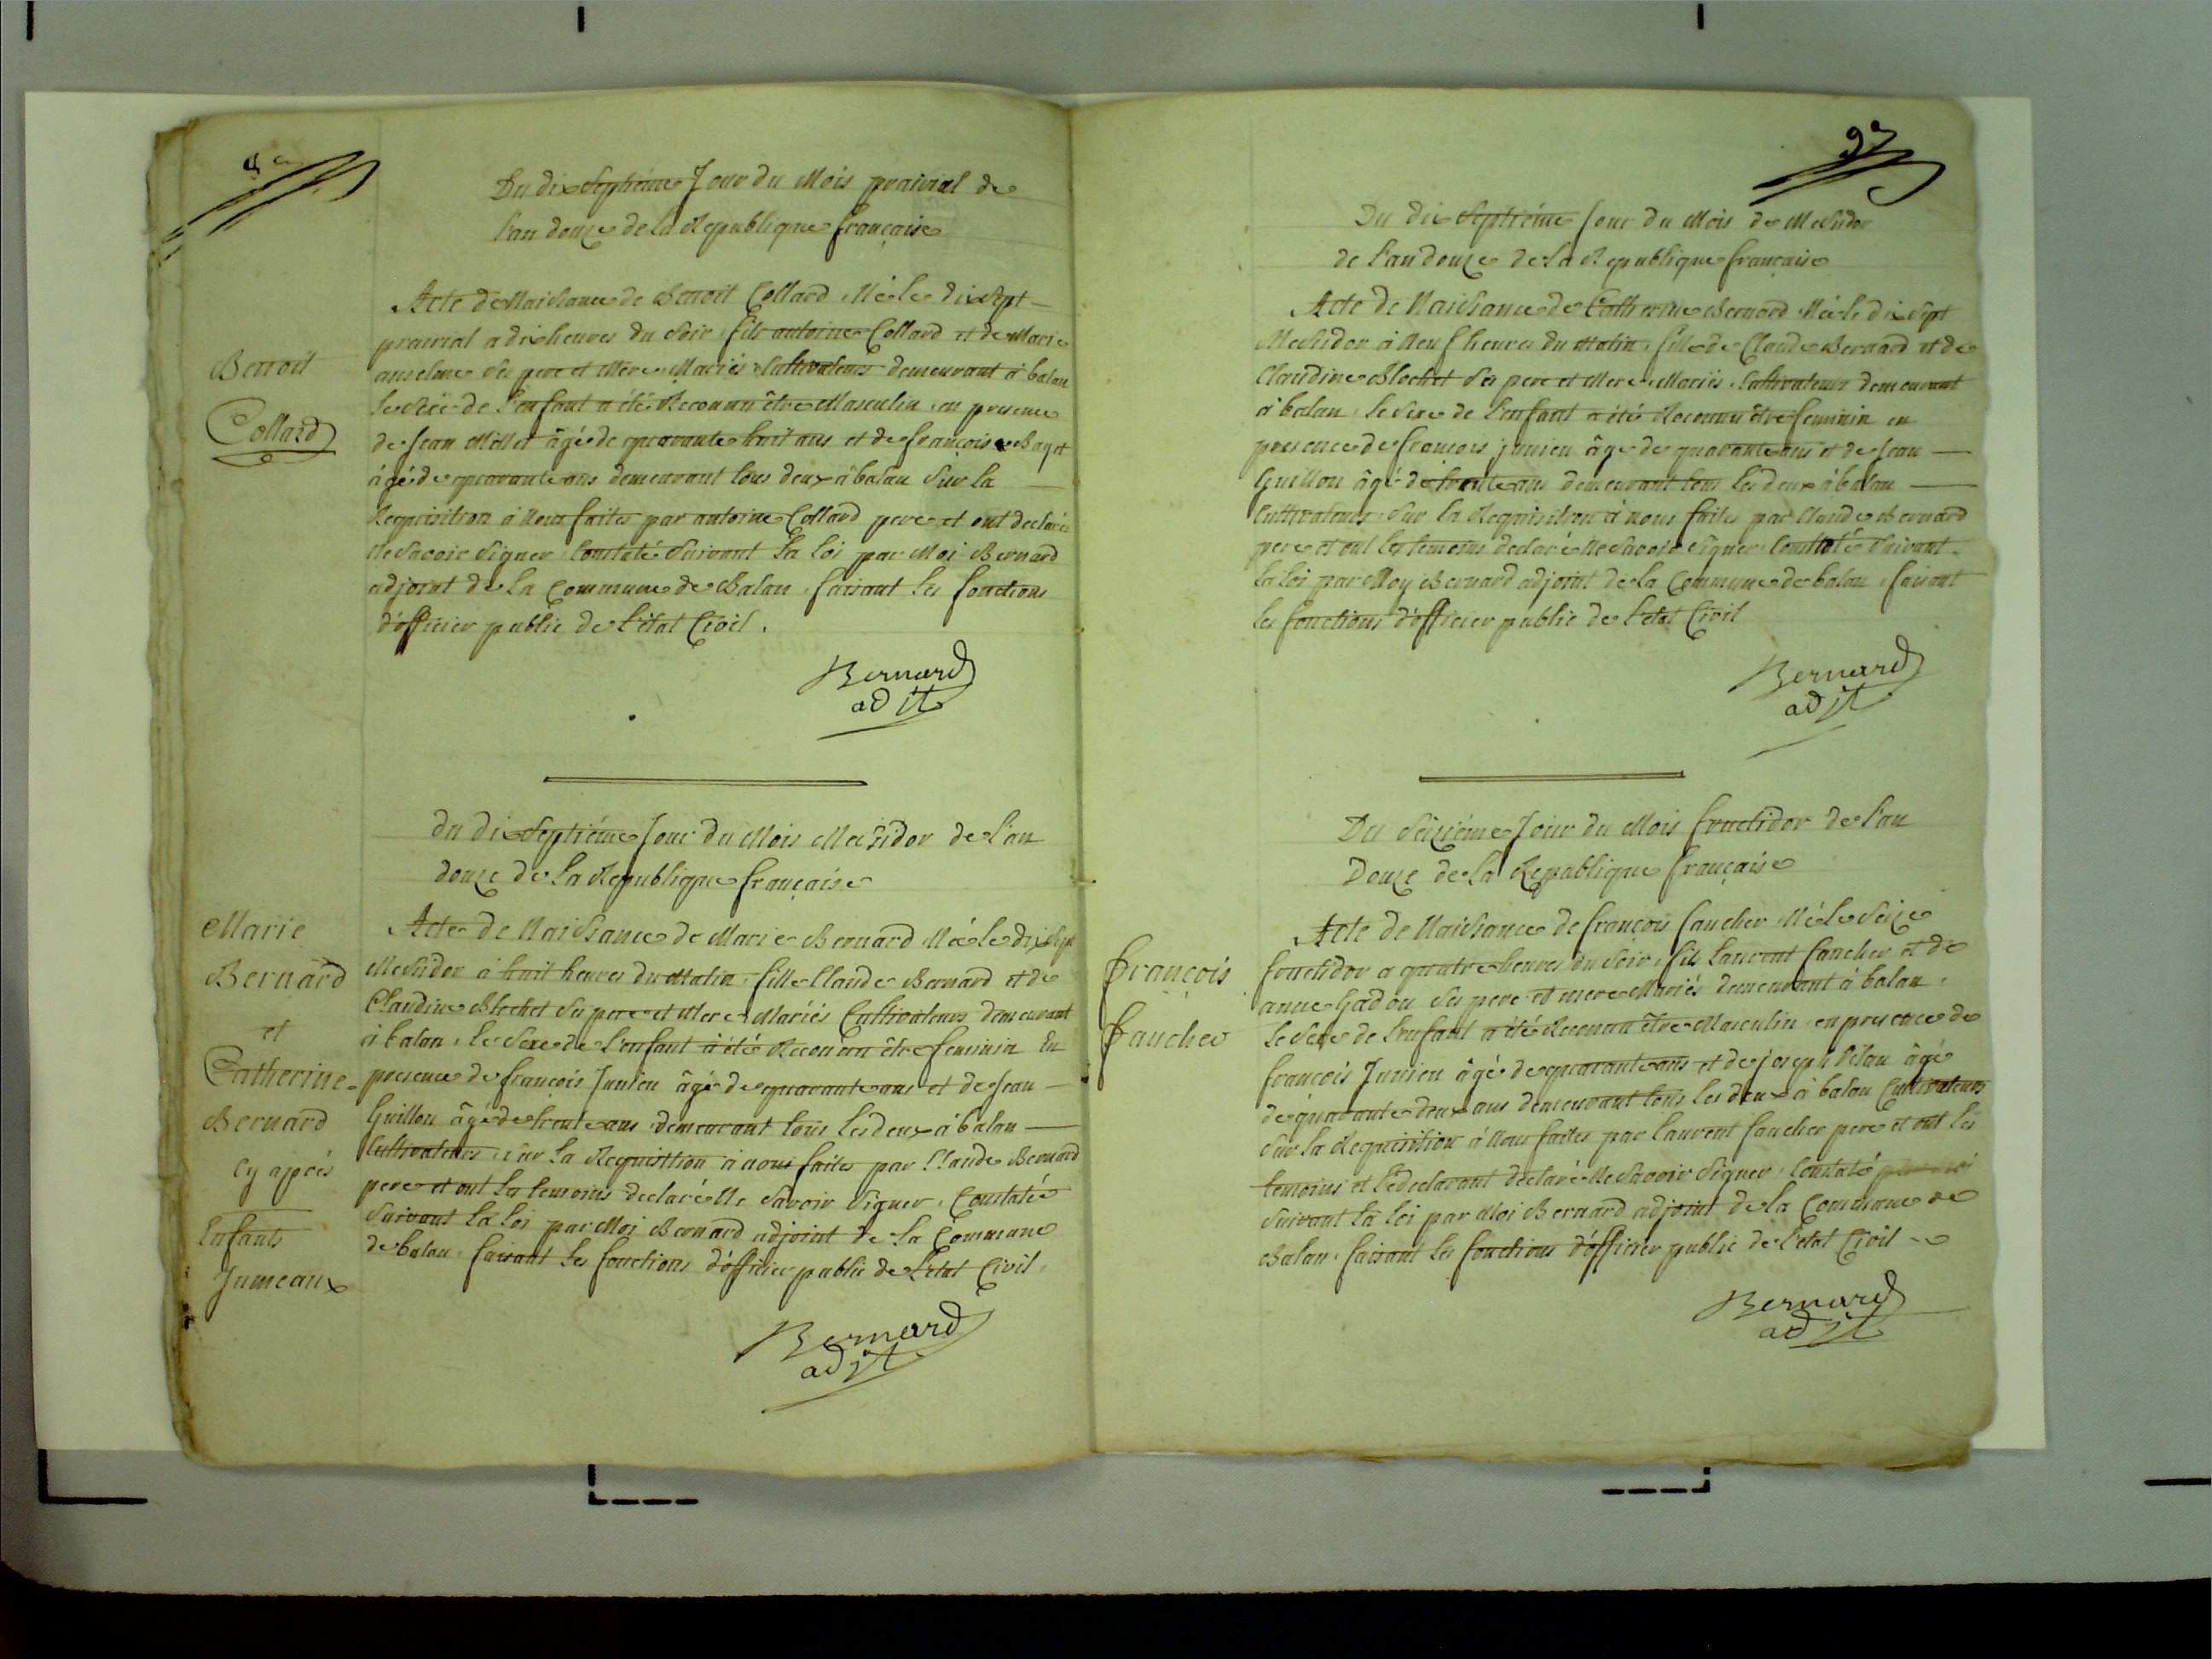 Du dix Septiéme Jour du Mois prairial de
L'an douze de la Republique française
Benoit
Collard
Acte de Naissance de Benoit Collard Né le dix Sept
prairial a dix heures du Soir, fils antoine Collard et de Marie
anselme Ses pere et Mere Mariés Cultivateurs demeurant à balan
le Sexe de l'enfant a été Reconnu être Masculin, en presence
de Jean Millet âgé de quarante huit ans et de françois Baget
âgé de quarante ans demeurant tous deux à balan Sur la
Requisition à Nous faites par antoine Collard pere et ont declarés
Ne Savoir Signer Constaté Suivant la loi par Moi Bernard
adjoint de la Commune de Balan, faisant les fonctions
d'officier public de l'état Civil.
Bernard
adjt
du dix Septiéme Jour du Mois Messidor de l'an
douze de la Republique française
Marie
Bernard
et
Catherine
Bernard
Cy aprés
Enfants
Jumeaux
Acte de Naissance de Marie Bernard Née le dix Sept
Messidor à huit heures du Matin, fille Claude Bernard et de
Claudine Blochet Ses pere et Mere Mariés Cultivateurs demeurant
à balan, le Sexe de l'enfant à été Reconnu être feminin En
presence de françois Junien âgé de quarante ans et de Jean
Guillon âgé de trente ans demeurant tous les deux à balan
Cultivateurs, Sur la Requisition à nous faites par Claude Bernard
pere et ont les temoins declaré Ne Savoir Signer, Constatée
Suivant la loi par Moi Bernard adjoint de la Commune
de balan, faisant les fonctions d'officier public de l'etat Civil.
Bernard
adjt
97
Du dix Septiéme Jour du Mois de Messidor
de l'an douze de la Republique française
Acte de Naissance de Catherine Bernard Née le dix Sept
Messidor à Neuf heures du Matin, fille de Claude Bernard et de
Claudine Blochet Ses pere et Mere Mariés, Cultivateurs demeurant
à balan, le Sexe de l'enfant a été Reconnu être feminin en
presence de françois junien âge de quarante ans et de Jean
Guillon âgé de trente ans demeurant tous les deux à balan
Cultivateurs, Sur la Requisition à nous faites par Claude Bernard
pere et ont les temoins declaré Ne Savoir Signer, Constatée Suivant
la loi par Moy Bernard adjoint de la Commune de balan, faisant
les fonctions d'officier public de l'etat Civil
Bernard
adjt
Du Seiziéme Jour du Mois fructidor de l'an
Douze de la Republique française
François
Faucher
Acte de Naissance de françois faucher Né le Seize
fructidor a quatre heures du Soir, fils Laurent faucher et de
anne Gadou Ses pere et mere Mariés demeurant à balan,
le Sexe de l'enfant a été Reconnu être Masculin en presence de
françois Junien âgé de quarante ans et de joseph âgé
de quarante deux ans demeurant tous les deux à balan Cultivateurs
Sur la Requisition à Nous faites par Laurent faucher pere et ont les
temoins et le declarant declaré Ne Savoir Signer, Constaté
Suivant la loi par Moi Bernard adjoint de la Commune de
Balan, faisant les fonctions d'officier public de l'etat Civil
Bernard
adjt